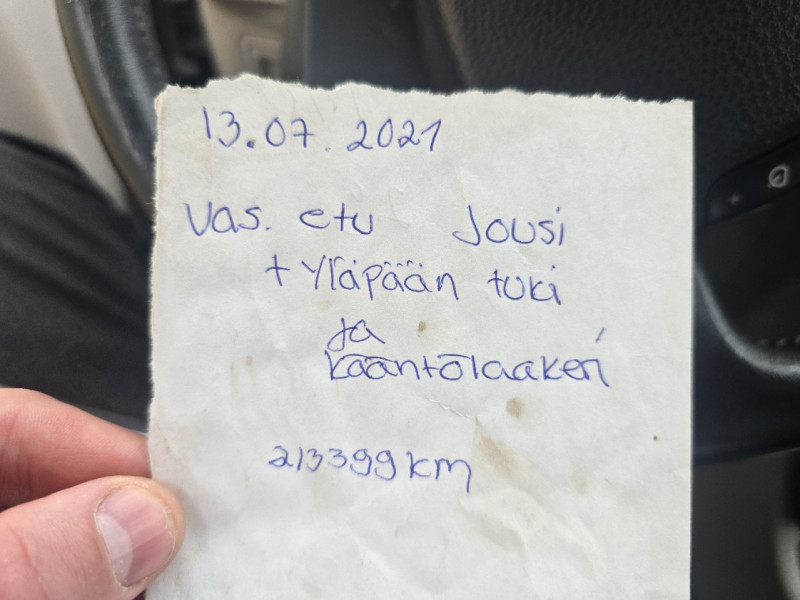 13.07.2021
Vas. etu Jousi
+ Yläpään tuki
ja
kääntölaakeri
213399 km